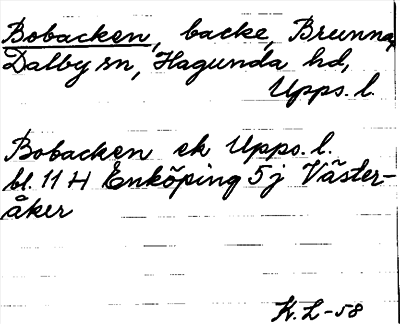 Bobacken, backe, Brunna,
Dalby sn, Hagunda hd,
Upps. l.
Bobacken ek Upps. l.
bl. 11 H Enköping 5 j Väster-
åker
K. L-58